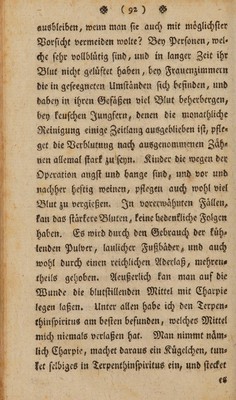 ( 92 )
ausbleiben, wenn man sie auch mit möglichster
Vorsicht vermeiden wolte? Bey Personen, wel-
che sehr vollblütig sind, und in langer Zeit ihr
Blut nicht gelüftet haben, bey Frauenzimmern
die in gesegneten Umständen sich befinden, und
dabey in ihren Gefäßen viel Blut beherbergen,
bey keuschen Jungfern, denen die monathliche
Reinigung einige Zeitlang ausgeblieben ist, pfle-
get die Verblutung nach ausgenommenen Zäh-
nen allemal stark zu seyn. Kinder die wegen der
Operation angst und bange sind, und vor und
nachher heftig weinen, pflegen auch wohl viel
Blut zu vergießen. In vorerwähnten Fällen,
kan das stärkere Bluten, keine bedenkliche Folgen
haben. Es wird durch den Gebrauch der küh-
lenden Pulver, laulicher Fußbäder, und auch
wohl durch einen reichlichen Aderlaß, mehren-
theils gehoben. Aeußerlich kan man auf die
Wunde die blutstillenden Mittel mit Charpie
legen laßen. Unter allen habe ich den Terpen-
thinspiritus am besten befunden, welches Mittel
mich niemals verlaßen hat. Man nimmt näm-
lich Charpie, machet daraus ein Kügelchen, tun-
ket selbiges in Terpenthinspiritus ein, und stecket
es